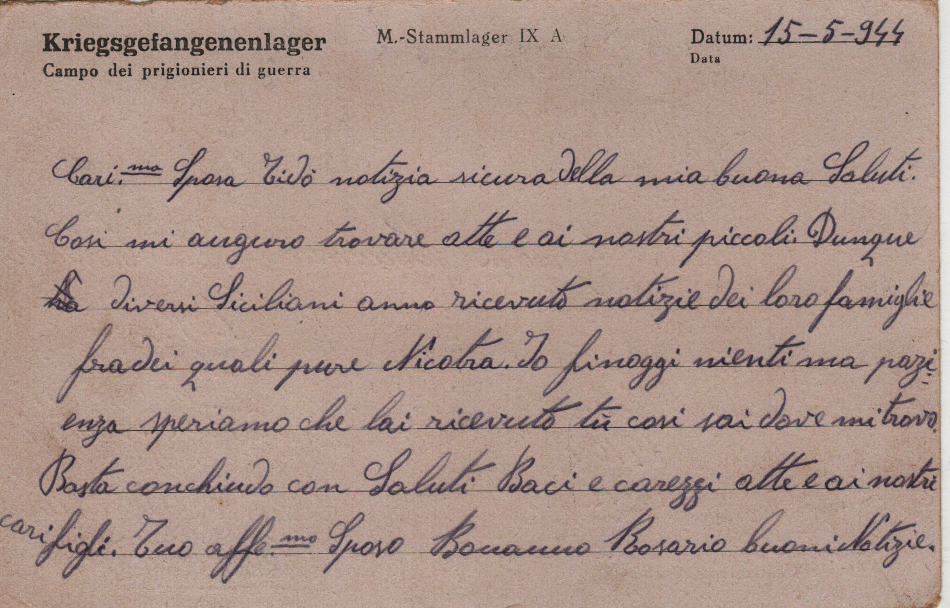 Kriegsgefangenenlager
Campo dei prigionieri di guerra
M.-Stammlager IX A
Datum: 15-5-944
Data
Cari.mo Sposa Tidò notizia sicura della mia buona Saluti.
Cosi mi auguro trovare atte e ai nostri piccoli. Dunque
diversi Siciliani anno ricevuto notizie dei loro famiglie
fra dei quali pure Nicotra. Io finoggi nienti ma pazi-
enza speriamo che lai ricevuto tù cosi sai dove mi trovo.
Basta conchiudo con Saluti Baci e carezzi atte e ai nostri
cari figli. Tuo affe.mo Sposo Bonanno Rosario buoni Notizie.